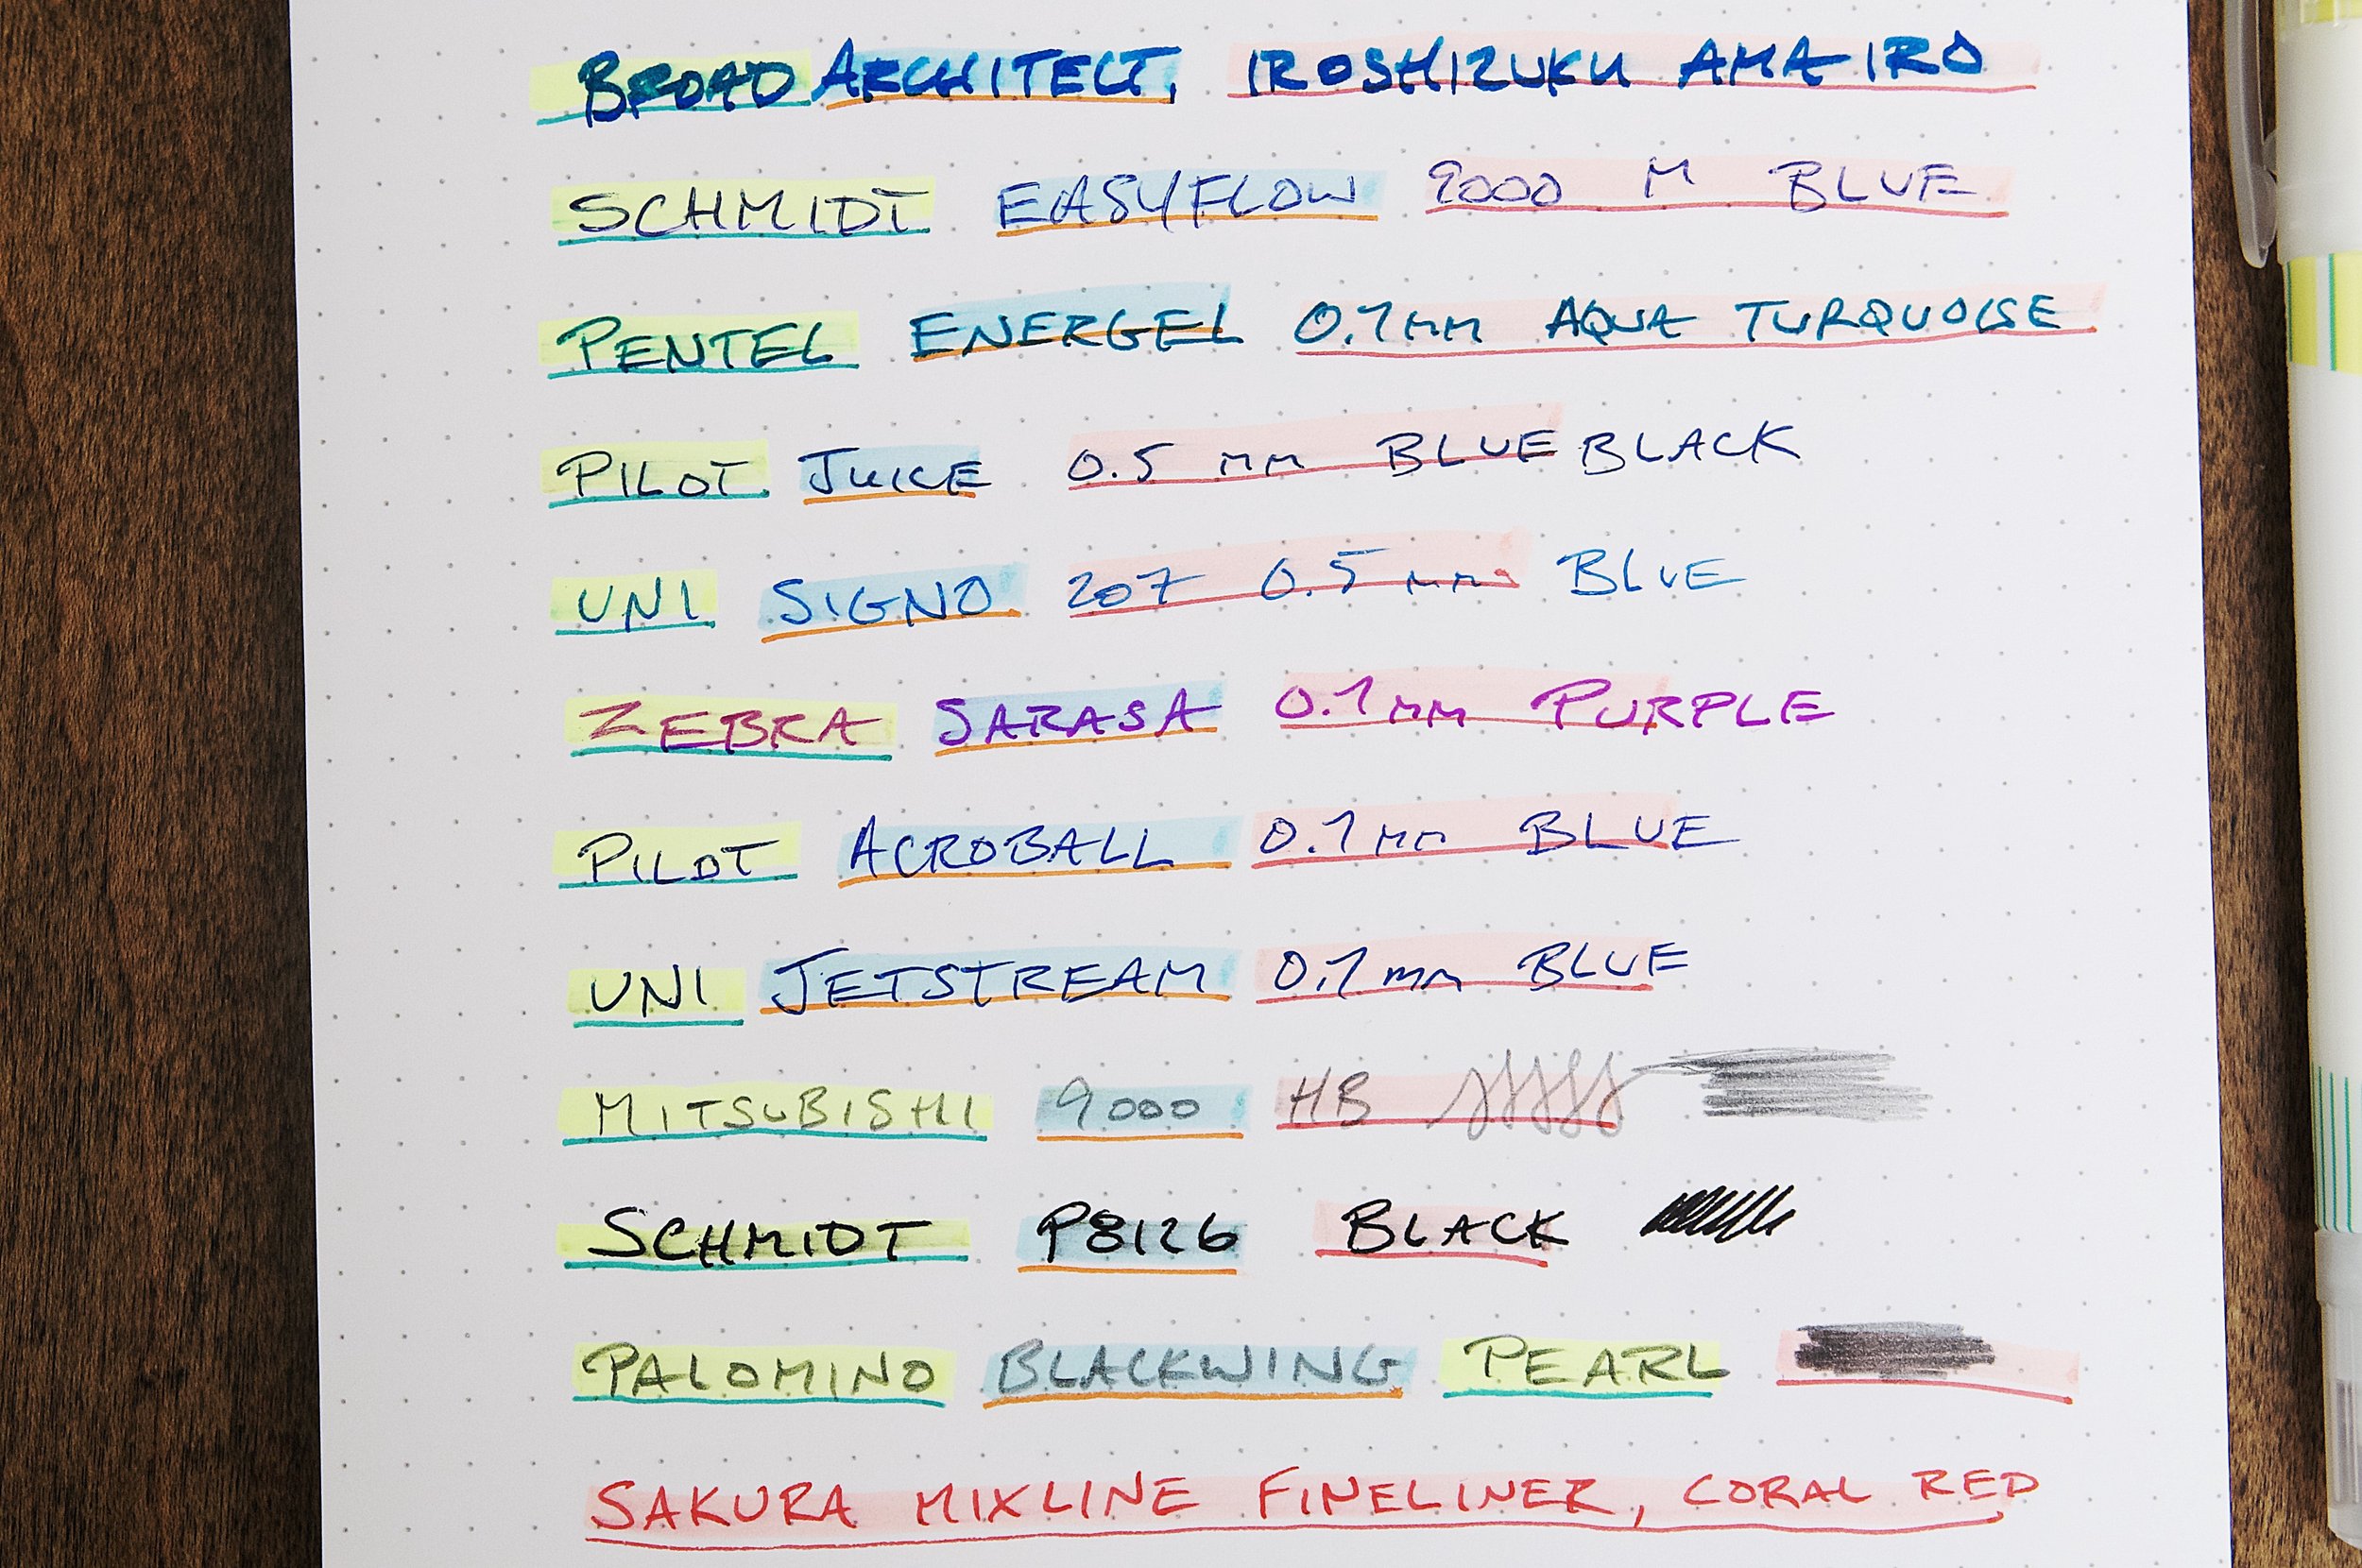 BROAD ARCHITECT, IROSHIZUKU AMA-IRO
SCHMIDT EASYFLOW 9000 M BLUE
PENTEL ENERGEL 0.7mm AQUA TURQUOISE
PILOT JUICE 0.5 mm BLUE BLACK
UNI SIGNO 207 0.5 mm BLUE
ZEBRA SARASA 0.7mm PURPLE
PILOT ACROBALL 0.7mm BLUE
UNI JETSTREAM 0.7mm BLUE
MITSUBISHI 9000 HB
SCHMIDT P8126 BLACK
PALOMINO BLACKWING PEARL
SAKURA MIXLINE FINELINER, CORAL RED